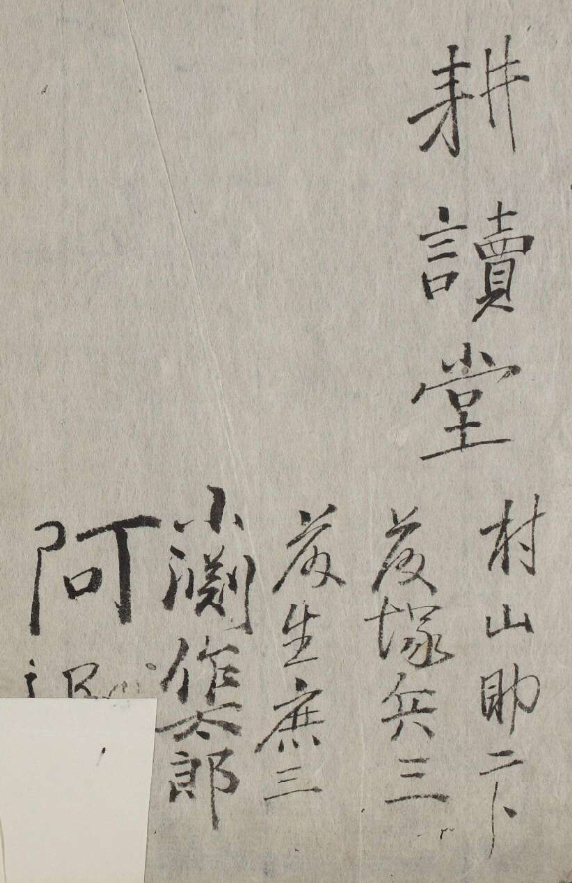 耕讀堂
村山助二卜
塚兵三
生庶三
小渕作太郎
阿